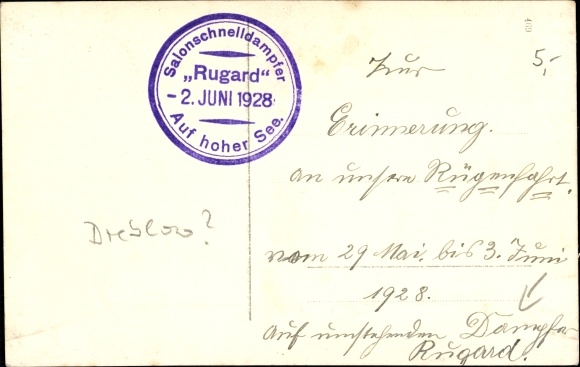 Salonschnelldampfer
„Rugard"
- 2. JUNI 1928
Auf hoher See.
469
5,-
Zur
Erinnerung.
an unsere Rügenfahrt.
vom 29 Mai. bis 3. Juni
1928.
Auf umstehenden Dampfer
Rugard.